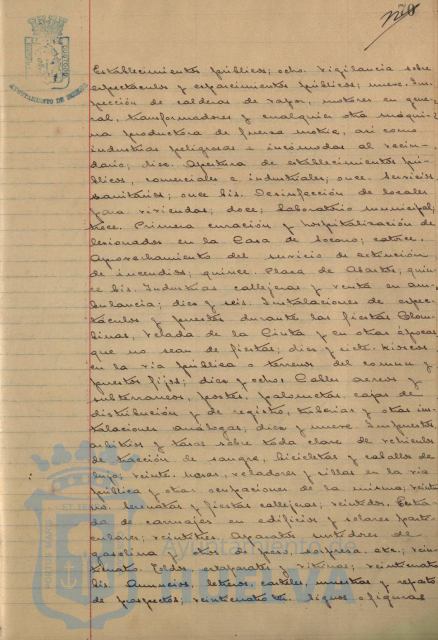 Establecimientos públicos; ocho. Vigilancia sobre
espectáculos y esparcimientos públicos; nueve. Ins-
pección de calderas de vapor, motores en gene-
ral, transformadores y cualquier otra máqui-
na productora de fuerza motriz, así como
industrias peligrosas e incómodas al vecin-
dario; diez. Apertura de establecimientos pú-
blicos, comerciales e industriales; once. Servicios
sanitarios; once bis. Desinfección de locales
para viviendas; doce; Laboratorio municipal;
trece. Primera curación y hospitalización de
lesionados en la Casa de Socorro; catorce.
Aprovechamiento del servicio de extinción
de incendios; quince. Plaza de Abastos; quin-
ce bis. Industrias callejeras y venta en am-
bulancia; diez y seis. Instalaciones de espec-
táculos y puestos durante las fiestas Colom-
binas, Velada de la Cinta y en otras épocas
que no sean de fiestas; diez y siete. Kioscos
en la vía pública o terrenos del común y
puestos fijos; diez y ocho. Cables aereos y
subterraneos, postes, palometas, cajas de
distribución y de registro, tuberias y otras ins-
talaciones análogas; diez y nueve. Impuestos,
arbitrios y tasas sobre toda clase de vehiculos
de tracción de sangre, bicicletas y caballos de
lujo; veinte. Mesas, veladores y sillas en la vía
pública y otras ocupaciones de la misma; veintiu-
no. Serenatas y fiestas callejeras; veintidos. Entra-
da de carruajes en edificios y solares parti-
culares; veintitres. Aparatos surtidores de
gasolina y otros de peso, sorpresa, etc.; vein-
ticuatro. Toldos, escaparates y vitrinas; veinticuatro
bis. Anuncios, letreros, carteles, muestras y reparto
de prospectos; veinticuatro
AYUNTAMIENTO DE HUELVA
Ayuntamiento de
HUELVA